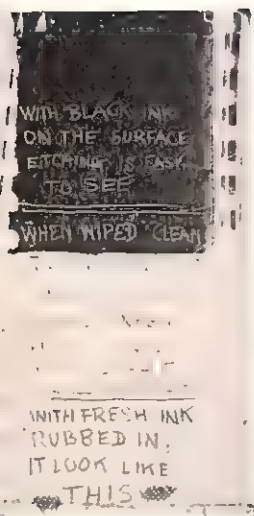 WITH BLACK INK
ON THE SURFACE
ETCHING IS EASY
TO SEE
WHEN WIPED CLEAN
WITH FRESH INK
RUBBED IN,
IT LOOK LIKE
THIS